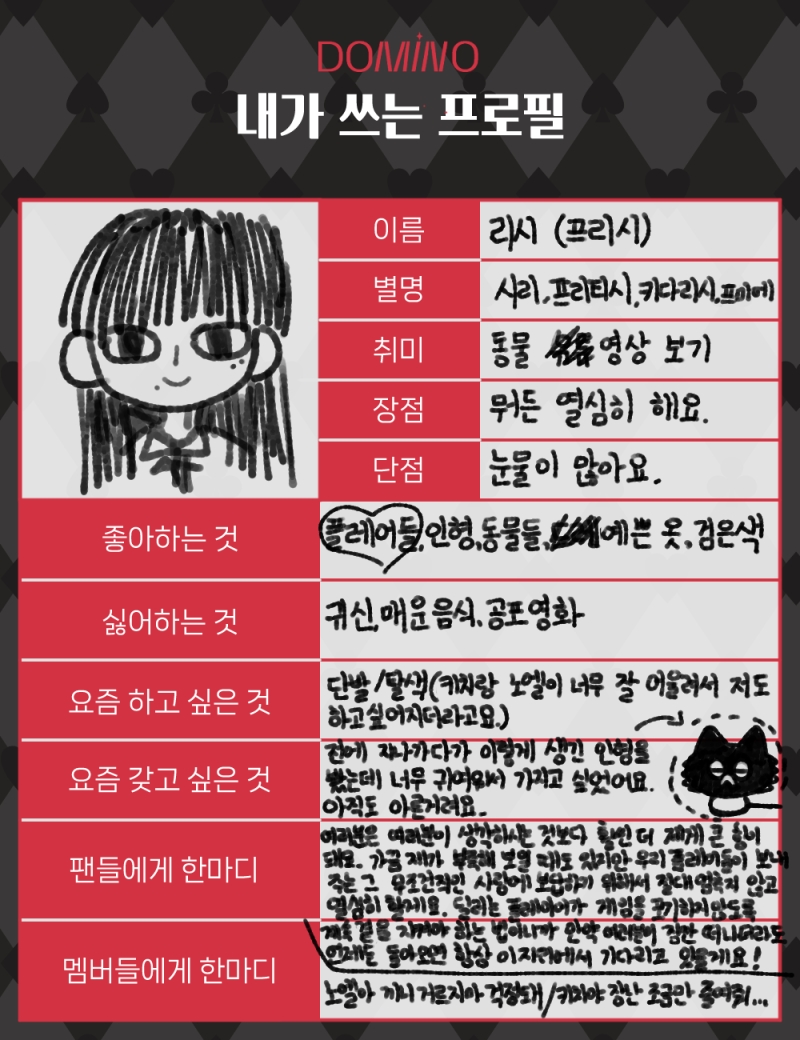 DOMINO
내가 쓰는 프로필
이름
리시 (프리시)
별명
시리, 프리티시, 키다리시, 프미에
취미
동물 영상 보기
장점
뭐든 열심히 해요.
단점
눈물이 많아요.
좋아하는 것
플레어들, 인형, 동물들, 예쁜 옷, 검은색
싫어하는 것
귀신, 매운음식, 공포영화
요즘 하고 싶은 것
단발/탈색(키치랑 노엘이 너무 잘 어울려서 저도
하고싶어지더라고요.)
요즘 갖고 싶은 것
전에 지나가다가 이렇게 생긴 인형을
봤는데 너무 귀여워서 가지고 싶었어요.
아직도 아른거려요.
팬들에게 한마디
여러분은 여러분이 생각하시는 것보다 훨씬 더 제게 큰 힘이
돼요. 가끔 제가 부족해 보일 때도 있지만 우리 플레어들이 보내
주는 그 무조건적인 사랑에 보답하기 위해서 절대 멈추지 않고
열심히 할게요. 딜러는 플레이어가 게임을 포기하지않도록
계속 곁을 지켜야 하는 법이니까 만약 여러분이 잠깐 떠나더라도
언제든 돌아오면 항상 이자리에서 기다리고 있을게요!
멤버들에게 한마디
노엘아 끼니 거르지마 걱정돼/키치야 장난 조금만 줄여줘...